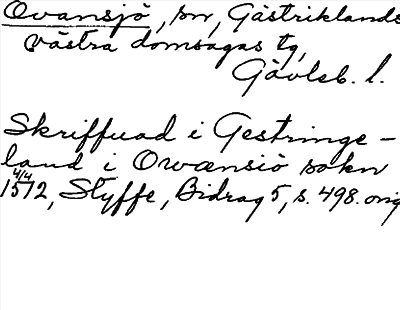 Ovansjö, sn, Gästriklands
västra domsagas tg,
Gävleb. l.
Skriffuad i Gestringe-
land i Owansiö sokn
4/4 1512, Styffe, Bidrag 5, s. 498. orig